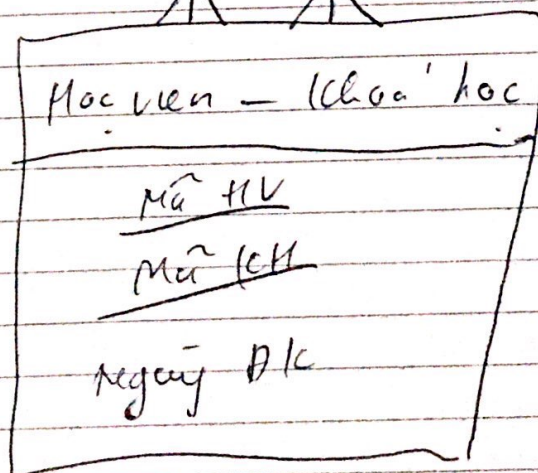 Học viên - Khoá học
Mã HV
Mã KH
Ngày ĐK